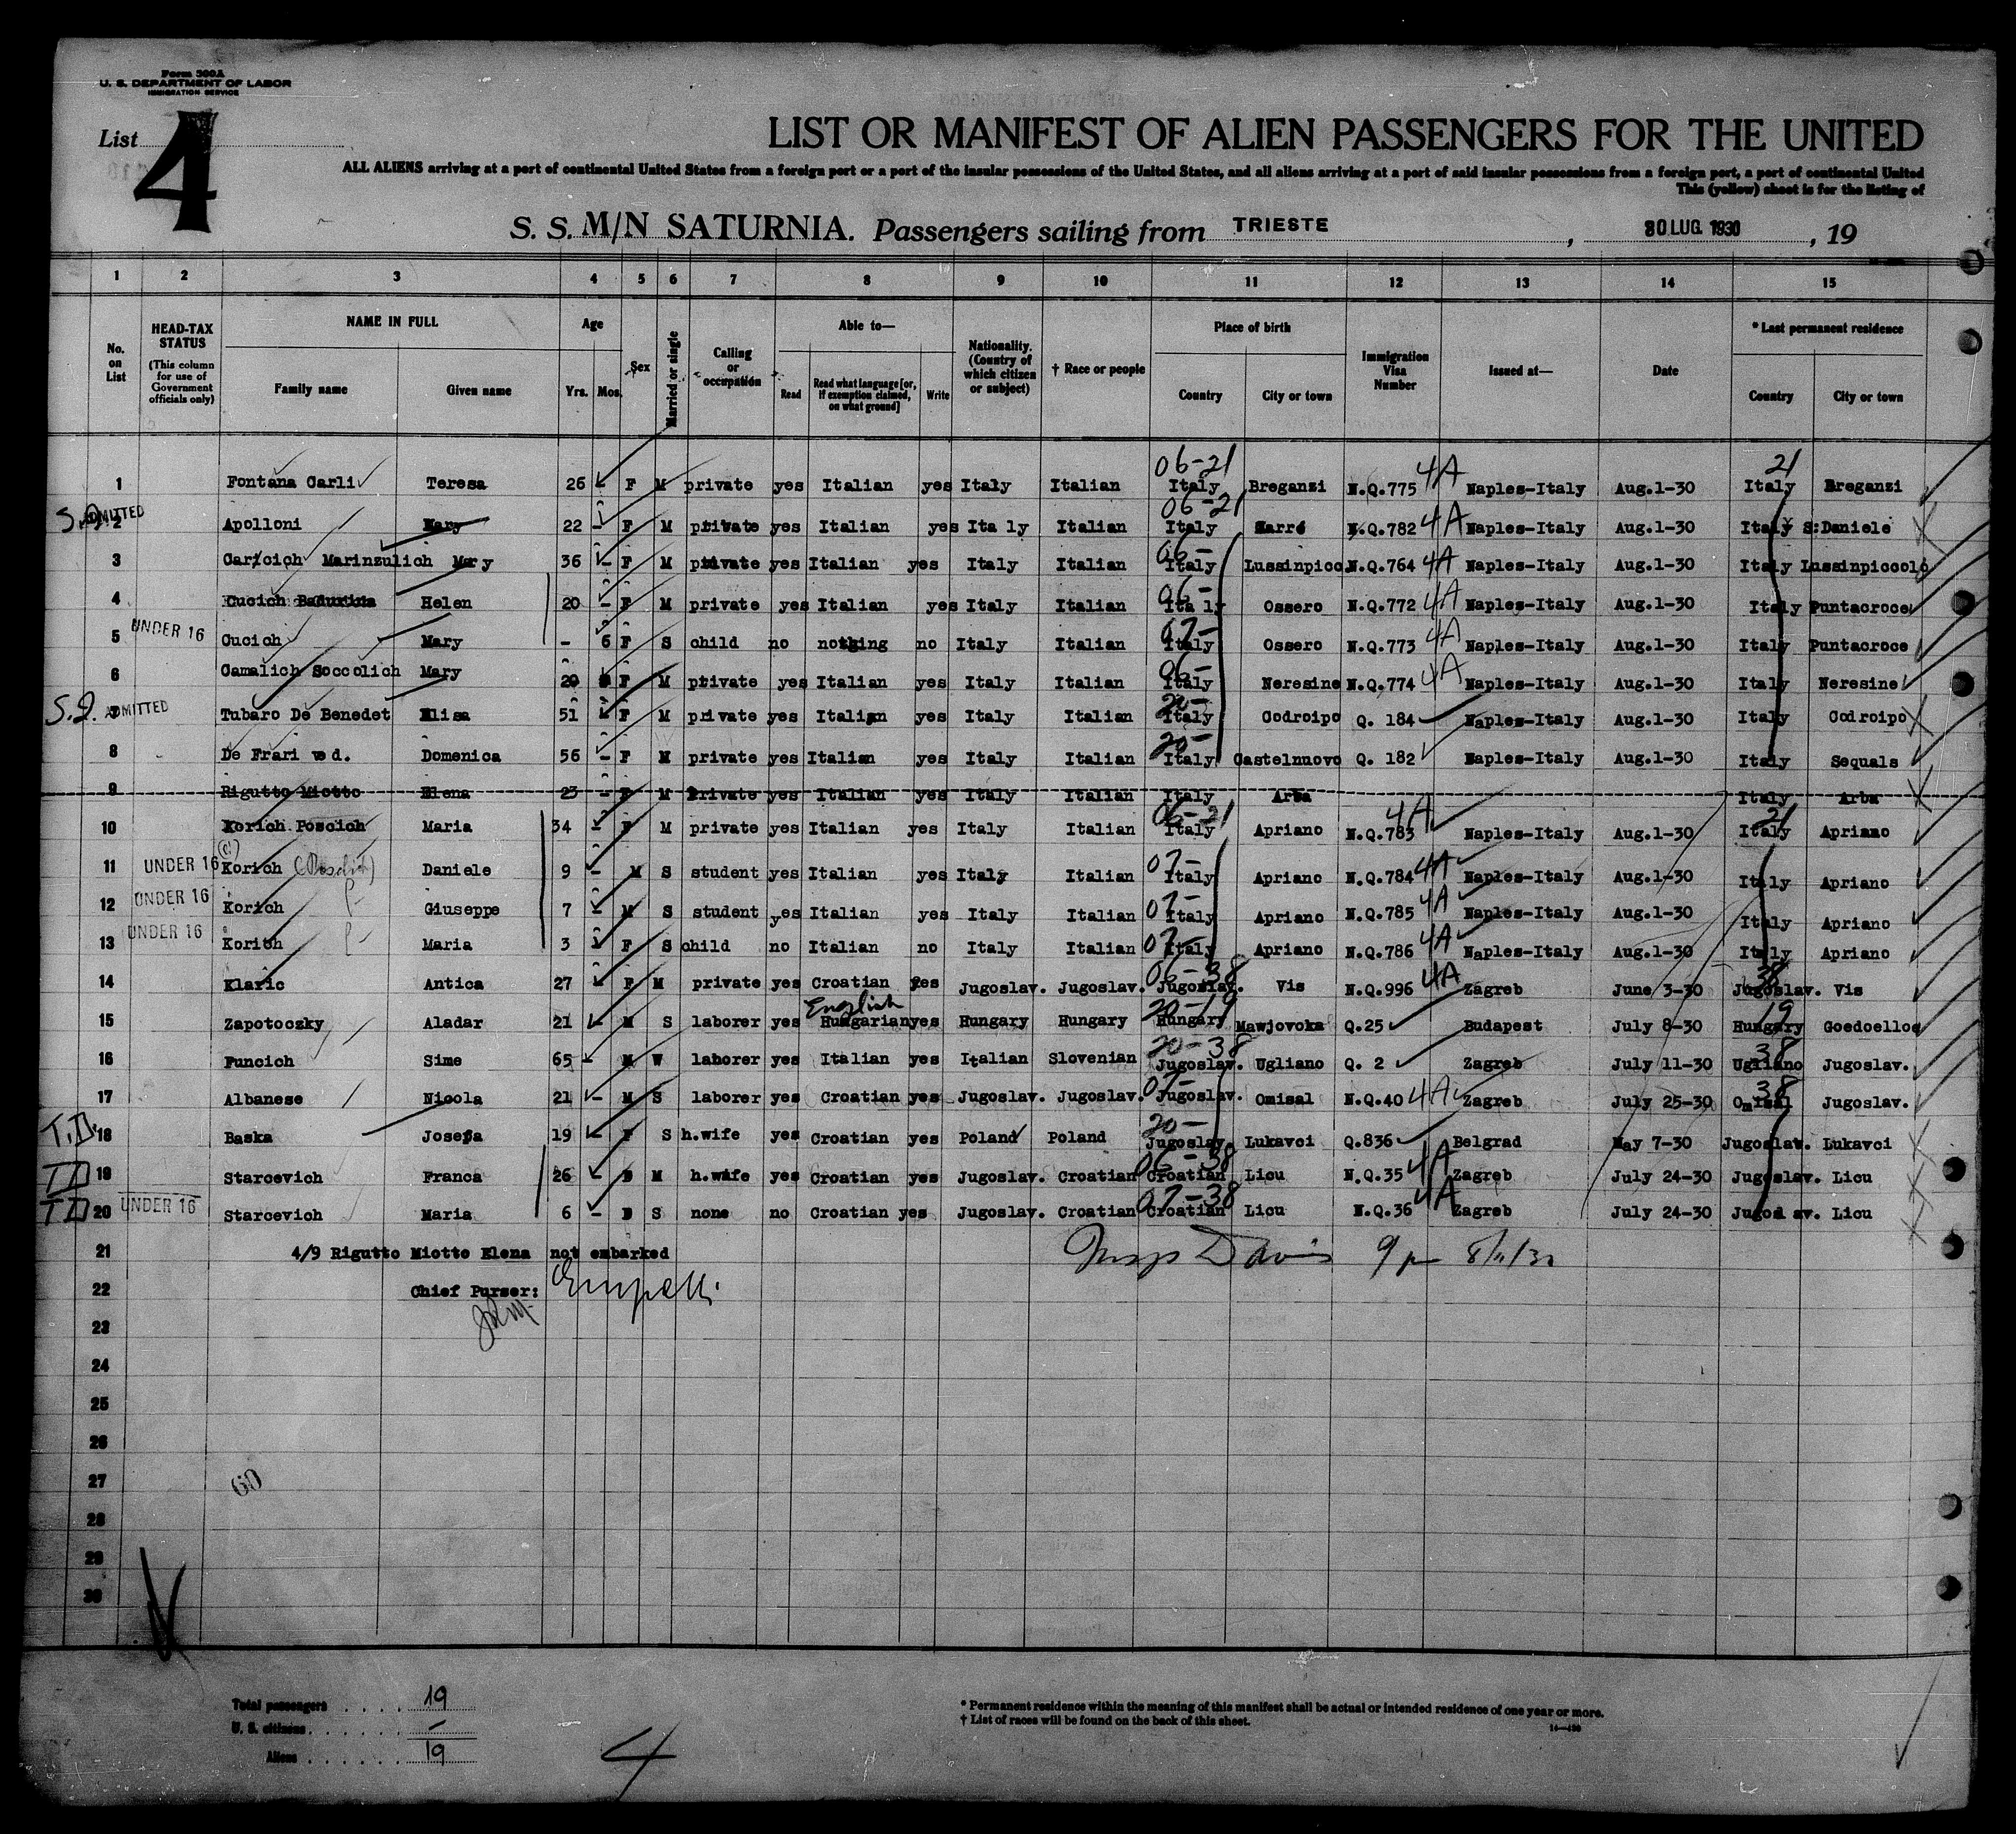 Form 500A
U. S. DEPARTMENT OF LABOR
IMMIGRATION SERVICE
List 4
LIST OR MANIFEST OF ALIEN PASSENGERS FOR THE UNITED
ALL ALIENS arriving at a port of continental United States from a foreign port or a port of the insular possessions of the United States, and all aliens arriving at a port of said insular possessions from a foreign port, a port of continental United
This (yellow) sheet is for the listing of
S. S. M/N SATURNIA. Passengers sailing from TRIESTE, 30 LUG. 1930, 19
1 2 3 4 5 6 7 8 9 10 11 12 13 14 15
No. on List
HEAD-TAX STATUS (This column for use of Government officials only)
NAME IN FULL
Family name Given name
Age
Yrs. Mos.
Sex
Married or single
Calling or occupation
Able to—
Read Read what language [or, if exemption claimed, on what ground] Write
Nationality. (Country of which citizen or subject)
† Race or people
Place of birth
Country City or town
Immigration Visa Number
Issued at—
Date
* Last permanent residence
Country City or town
06-21 4A 21
1 Fontana Carli Teresa 26 F M private yes Italian yes Italy Italian Italy Breganzi N.Q.775 Naples-Italy Aug.1-30 Italy Breganzi
06-21
S.I. ADMITTED 2 Apolloni Mary 22 - F M private yes Italian yes Ita ly Italian Italy Marré N.Q.782 4A Naples-Italy Aug.1-30 Italy S:Daniele
06-
3 Caricich Marinzulich Mary 36 - F M private yes Italian yes Italy Italian Italy Lussinpicc N.Q.764 4A Naples-Italy Aug.1-30 Italy Lussinpiccolo
06-
4 Cucich Badurina Helen 20 - F M private yes Italian yes Italy Italian Ita ly Ossero N.Q.772 4A Naples-Italy Aug.1-30 Italy Puntacroce
07-
5 UNDER 16 Cucich Mary - 6 F S child no nothing no Italy Italian Italy Ossero N.Q.773 4A Naples-Italy Aug.1-30 Italy Puntacroce
06-
6 Camalich Soccolich Mary 20 F M private yes Italian yes Italy Italian Italy Neresine N.Q.774 4A Naples-Italy Aug.1-30 Italy Neresine
20-
S.I. ADMITTED 7 Tubaro De Benedet Elisa 51 F M private yes Italian yes Italy Italian Italy Codroipo Q. 184 Naples-Italy Aug.1-30 Italy Codroipo
20-
8 De Frari ved. Domenica 56 - F M private yes Italian yes Italy Italian Italy Castelnuovo Q. 182 Naples-Italy Aug.1-30 Italy Sequals
9 Rigutto Miotto Elena 23 - F M Private yes Italian yes Italy Italian Italy Arba Italy Arba
06-21 4A 21
10 Korich Poscich Maria 34 - F M private yes Italian yes Italy Italian Italy Apriano N.Q.783 Naples-Italy Aug.1-30 Italy Apriano
07-
11 UNDER 16 Korich Daniele 9 - M S student yes Italian yes Italy Italian Italy Apriano N.Q.784 4A Naples-Italy Aug.1-30 Italy Apriano
12 UNDER 16 Korich Giuseppe 7 - M S student yes Italian yes Italy Italian 07- Italy Apriano N.Q.785 4A Naples-Italy Aug.1-30 Italy Apriano
13 UNDER 16 Korich Maria 3 - F S child no Italian no Italy Italian 07- Italy Apriano N.Q.786 4A Naples-Italy Aug.1-30 Italy Apriano
06-38 38
14 Klaric Antica 27 F M private yes Croatian yes Jugoslav. Jugoslav. Jugoslav. Vis N.Q.996 4A Zagreb June 3-30 Jugoslav. Vis
English 20-19 19
15 Zapotoczky Aladar 21 - M S laborer yes Hungarian yes Hungary Hungary Hungary Mawjovoka Q.25 Budapest July 8-30 Hungary Goedoelloe
20-38 38
16 Puncich Sime 65 - M W laborer yes Italian yes Italian Slovenian Jugoslav. Ugliano Q. 2 Zagreb July 11-30 Ugliano Jugoslav.
07- 38
17 Albanese Nicola 21 - M S laborer yes Croatian yes Jugoslav. Jugoslav. Jugoslav. Omisal N.Q.40 4A Zagreb July 25-30 Omisal Jugoslav.
20-
T.D. 18 Baska Josefa 19 F S h.wife yes Croatian yes Poland Poland Jugoslav. Lukavci Q.836 Belgrad May 7-30 Jugoslav. Lukavci
06-38
TD 19 Starcevich Franca 26 - D M h.wife yes Croatian yes Jugoslav. Croatian Croatian Licu N.Q.35 4A Zagreb July 24-30 Jugoslav. Licu
07-38
TD 20 UNDER 16 Starcevich Maria 6 - D S none no Croatian yes Jugoslav. Croatian Croatian Licu N.Q.36 4A Zagreb July 24-30 Jugoslav. Licu
21 4/9 Rigutto Miotto Elena not embarked Davis 9 pm 8/11/30
22 Chief Purser:
23
24
25
26
27
28
29
30
60
Total passengers . . . . 19
U. S. citizens . . . . . . -
Aliens . . . . . . 19
4
* Permanent residence within the meaning of this manifest shall be actual or intended residence of one year or more.
† List of races will be found on the back of this sheet.